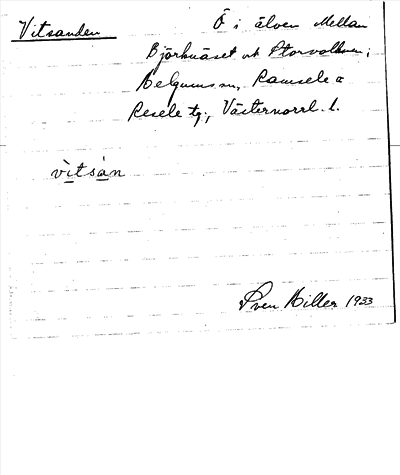 Vitsanden
Ö i älven mellan
Björknäset och Storvallsen;
Helgums sn, Ramsele o
Resele tg., Västernorrl. l.
vìtsàn
Sven Hiller 1933